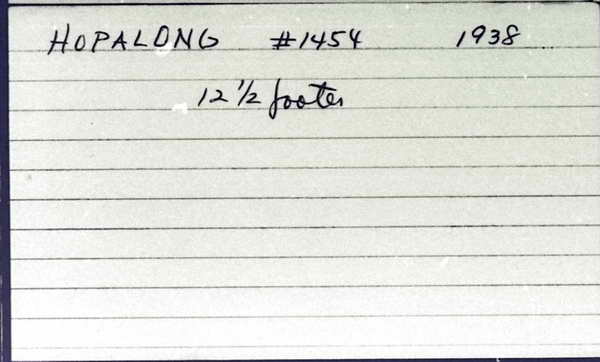 HOPALONG #1454 1938
12 1/2 footer